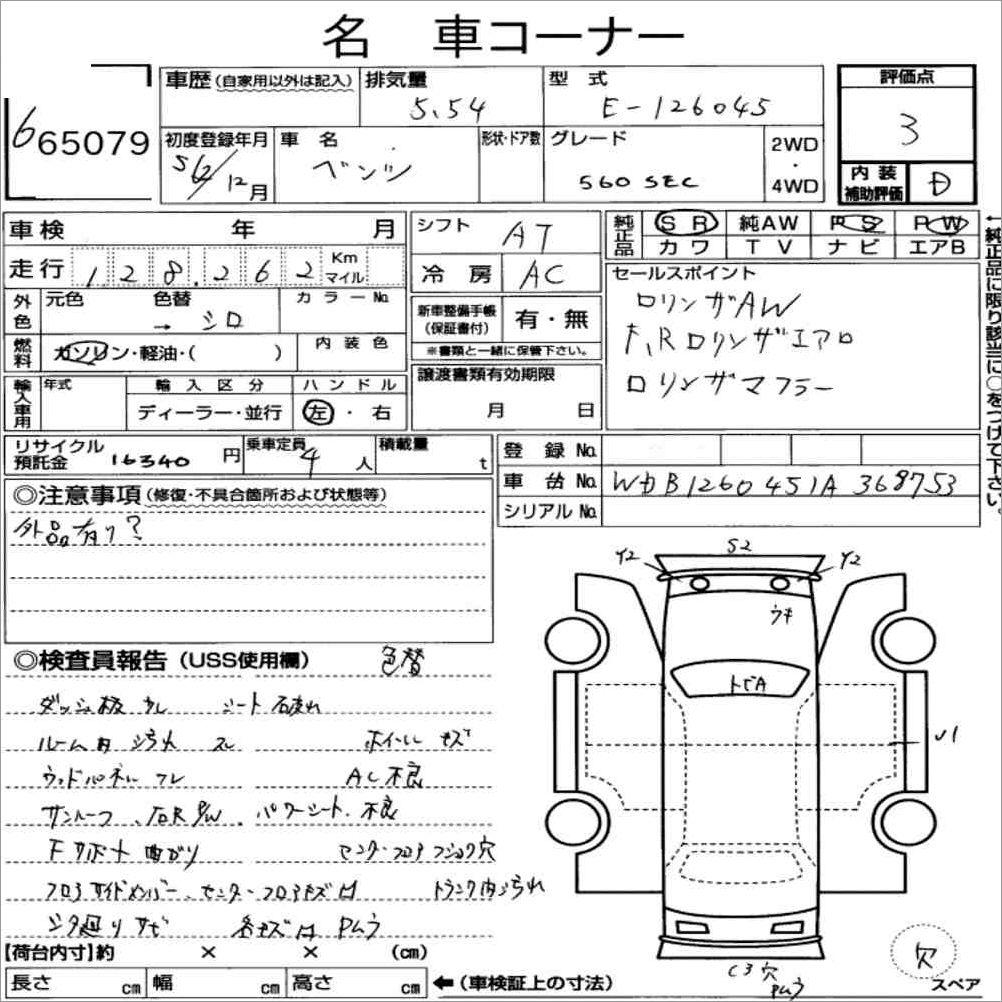 名 車コーナー
665079
車歴(自家用以外は記入) 排気量 型式 評価点
5.54 E-126045 3
初度登録年月 車名 形状・ドア数 グレード 2WD・4WD
S62/12月 ベンツ 560 SEC
内装補助評価 D
車検 年 月 シフト AT 純正品 SR 純AW PS PW
カワ TV ナビ エアB
走行 128,262 Km マイル 冷房 AC
セールスポイント
ロリンザAW
F,Rロリンザエアロ
ロリンザマフラー
←純正品に限り該当に○をつけて下さい。
外色 元色 色替 カラーNo.
→ シロ
新車整備手帳(保証書付) 有・無
※書類と一緒に保管下さい。
燃料 ガソリン・軽油・( ) 内装色
譲渡書類有効期限
月 日
輸入車用 年式 輸入区分 ハンドル
ディーラー・並行 左・右
リサイクル預託金 16340円 乗車定員 4人 積載量 t
登録No.
車台No. WDB1260451A368753
シリアルNo.
◎注意事項(修復・不具合箇所および状態等)
外品有り?
◎検査員報告(USS使用欄) 色替
ダッシュ板 ワレ シート破れ
ルーム内汚れ スレ ホイールキズ
ウッドパネル ワレ AC不良
サンルーフ、右R P/W、パワーシート、不良
Fサポート曲がり センターフロアフショク穴
フロアサイドメンバー、センターフロアキズ凹 トランク内汚れ
下廻りサビ 各キズ凹 Pムラ
Y2 S2 Y2
ウキ
トビA
U1
C3穴
Pムラ
欠
スペア
【荷台内寸】約 × × (cm)
長さ cm 幅 cm 高さ cm ←(車検証上の寸法)